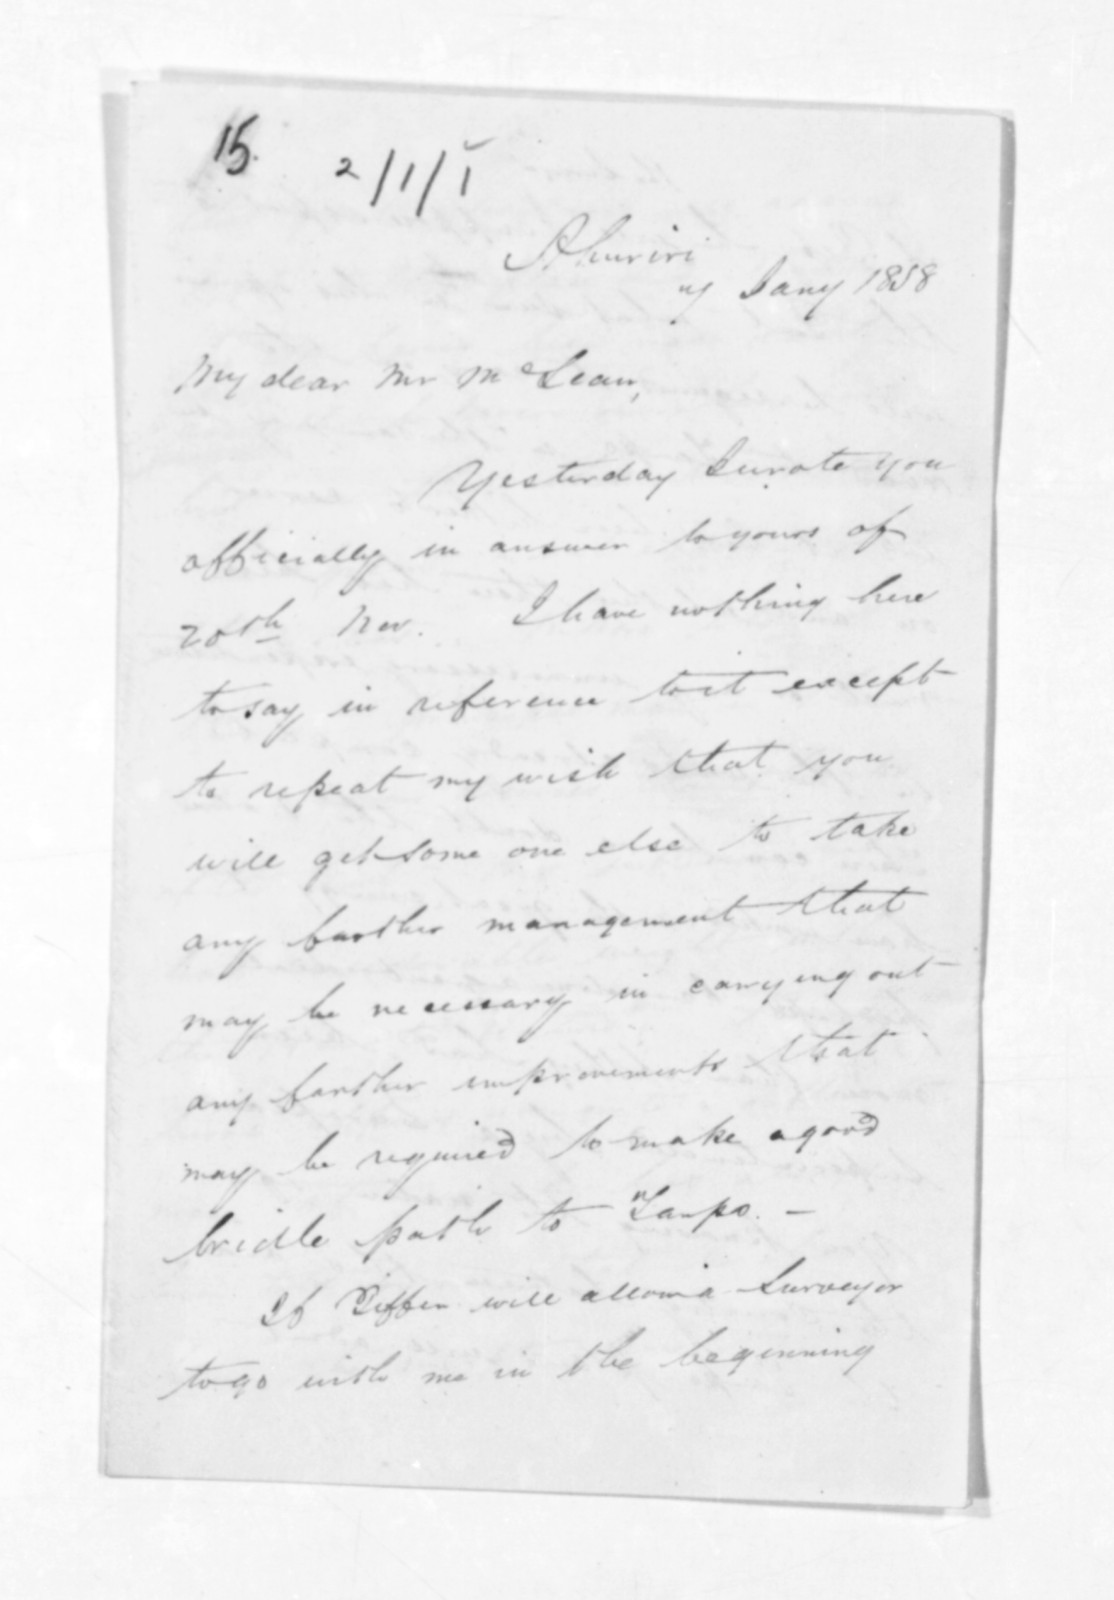 15.
2/1/1
Ahuriri
Jany 1858
My dear Mr McLean,
Yesterday I wrote you
officially in answer to yours of
20th Nov. I have nothing here
to say in reference to it except
to repeat my wish that you
will get some one else to take
any farther management that
may be necessary in carrying out
any farther improvements that
may be required to make a good
bridle path to Taupo. —
If Tiffen will allow a Surveyor
to go with me in the beginning